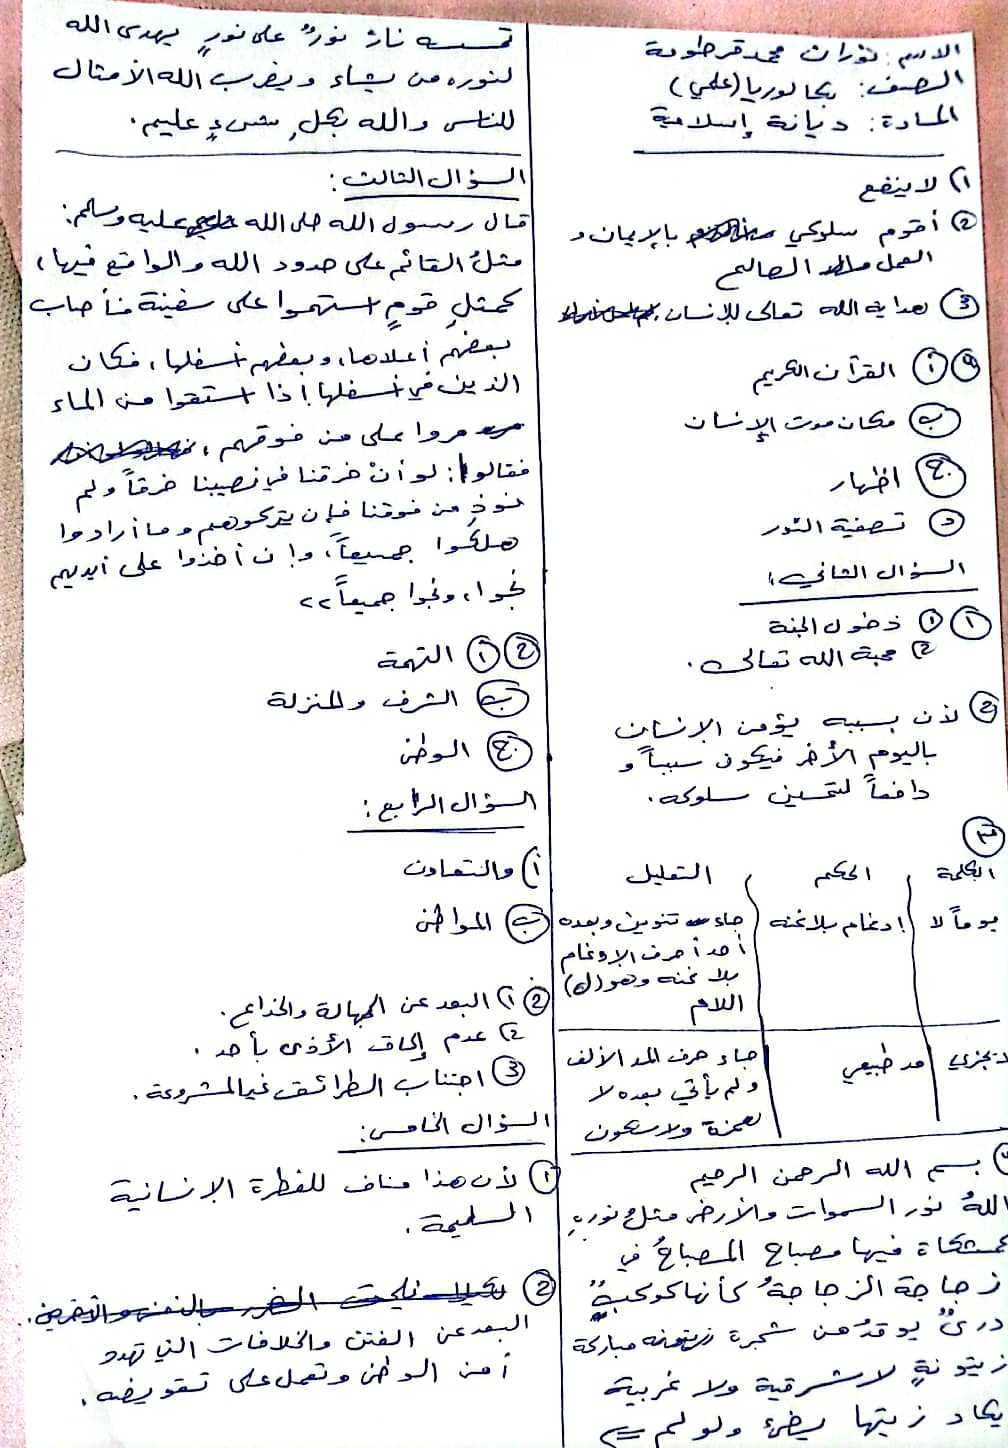 الاسم: نوران محمد قرطومة
الصف: بكالوريا (علمي)
المادة: ديانة إسلامية
١) لا ينفع
② أقوم سلوكي بالإيمان و
العمل الصالح
③ هداية الله تعالى للإنسان.
④ أ القرآن الكريم
ب مكان موت الإنسان
ج اظهار
د تصفية الثور
السؤال الثاني:
① ① دخول الجنة
2) محبة الله تعالى.
② لأن بسببه يؤمن الإنسان
باليوم الأخر فيكون سبباً و
دافعاً لتحسين سلوكه.
٣
الكلمة الحكم التعليل
يوماً لا إدغام بلاغنه جاء تنوين وبعده
أحد أحرف الإدغام
بلا غنه وهو (ل)
اللام
لا يجزي مد طبيعي جاء حرف المد الألف
ولم يأتي بعده لا
همزة ولا سكون
بسم الله الرحمن الرحيم
اللهُ نور السموات والأرض مثلُ نورهِ
كمشكاة فيها مصباح المصباحُ في
زجاجة الزجاجةُ كأنها كوكبٌ
دريٌ يوقدُ من شجرة مباركة
زيتونةٍ لا شرقية ولا غربية
يكاد زيتها يضيء ولو لم
تمسسه نارٌ نورٌ على نورٍ يهدي الله
لنوره من يشاء ويضرب الله الأمثال
للناس والله بكلِ شيءٍ عليم.
السؤال الثالث:
قال رسول الله صلى الله عليه وسلم:
مثلُ القائم على حدود الله والواقع فيها،
كمثلِ قومٍ استهموا على سفينة فأصاب
بعضهم أعلاها، وبعضهم أسفلها، فكان
الذين في أسفلها إذا استقوا من الماء
مروا على من فوقهم،
فقالوا: لو أنْ خرقنا في نصيبنا خرقاً ولم
نوذِ من فوقنا فإن يتركوهم وما أرادوا
هلكوا جميعاً، وإن أخذوا على أيديهم
نجوا، ونجوا جميعاً>>
② ① التهمة
ب الشرف والمنزلة
ج الوطن
السؤال الرابع:
أ) والتعاون
ب المواطن
② ١) البعد عن الجهالة والخداع.
2) عدم إلحاق الأذى بأحد.
③ اجتناب الطرائق غير المشروعة.
السؤال الخامس:
① لأن هذا مناف للفطرة الإنسانية
السليمة.
②
البعد عن الفتن والخلافات التي تهدد
أمن الوطن وتعمل على تقويضه.